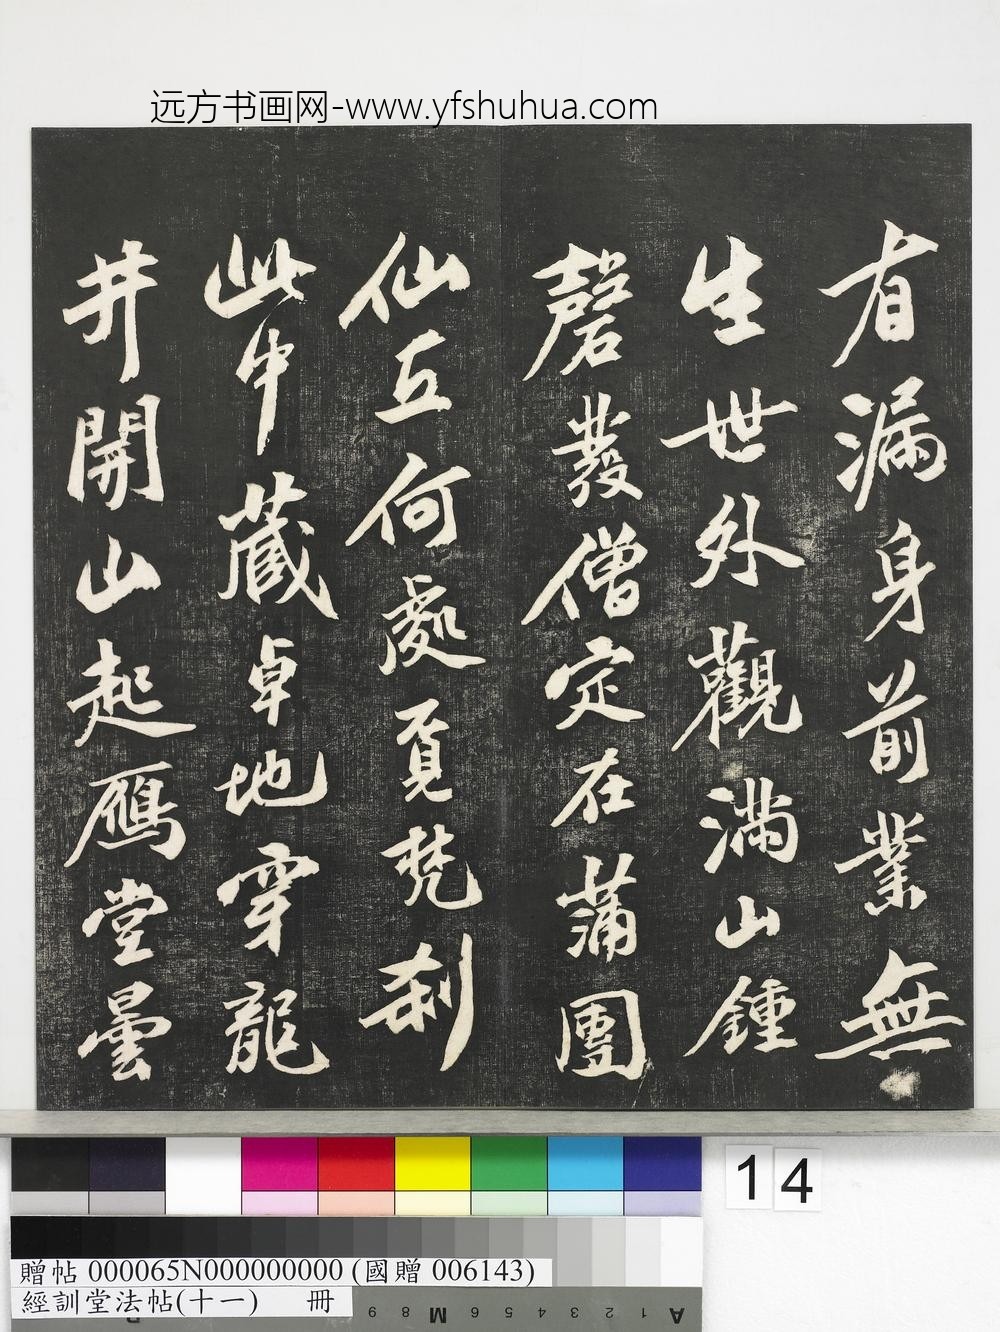 远方书画网-www.yfshuhua.com
有漏身前業無
生世外觀滿山鍾
磬發僧定在蒲團
仙丘何處覓梵刹
此中藏卓地穿龍
井開山起鴈堂曇
14
贈帖 000065N000000000 (國贈 006143)
經訓堂法帖(十一) 冊
9 8 M 6 5 4 3 2 1 A